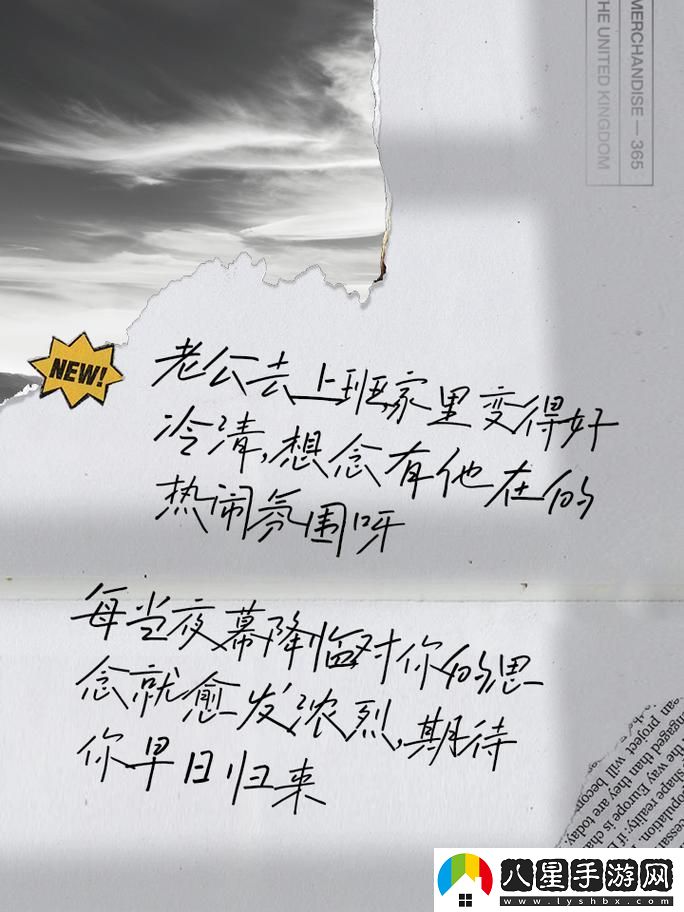 MERCHANDISE — 365
THE UNITED KINGDOM
NEW!
老公去上班家里变得好
冷清,想念有他在的
热闹氛围呀
每当夜幕降临对你的思
念就愈发浓烈,期待
你早日归来
an project will becom
ngaged than they are today.
the way Europe is cha
shape reality: if
opulation.
cessar
八星手游网
www.lyshbx.com